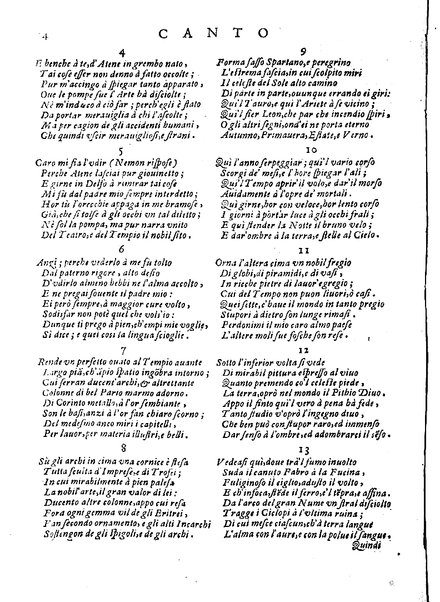 4
CANTO
4
E benche à te, d'Atene in grembo nato,
Tai cose esser non denno à fatto occolte;
Pur m'accingo à spiegar tanto apparato,
Oue le pompe fur d'Arte disciolte;
Nè m'induco à ciò far; perch'egli è stato
Da portar merauiglia à chi l'ascolte;
Ma per cagion de gli accidenti humani,
Che quindi vscir merauigliosi, e strani.
5
Caro mi fia l'vdir (Nemon rispose)
Perche Atene lasciai pur giouinetto;
E girne in Delfo à rimirar tai cose
Mi fù dal padre mio sempre interdetto;
Hor tù l'orecchie appaga in me bramose,
Già, che si tolse à gli occhi vn tal diletto;
Nè sol la pompa, ma pur narra vnito
Del Teatro, e del Tempio il nobil sito.
6
Angi; perche vederlo à me fu tolto
Dal paterno rigore, alto desio
D'vdirlo almeno hebbi ne l'alma accolto,
E ne pregai souente il padre mio:
Ei però sempre, à maggior cure volto,
Sodisfar non potè quel che vols'io:
Dunque ti prego à pien, ch'empi mie voglie;
Si dice; e quei così la lingua scioglie.
7
Rende vn perfetto ouato al Tempio auante
Largo pià, ch'àpio spatio ingōbra intorno;
Cui serran ducent'archi, & altrettante
Colonne di bel Pario marmo adorno.
Di Corinto metallo, à lor sembiante,
Son le basi, anzi à l'or fan chiaro scorno;
Del medesmo anco miri i capitelli,
Per lauor, per materia illustri, e belli.
8
Sù gli archi in cima vna cornice è stesa
Tutta sculta d'Imprese, e di Trofei;
In cui mirabilmente à pien palesa
La nobil'arte, il gran valor di lei:
Ducento altre colonne, appo cui resa
Fora ogni gemma vil de gli Eritrei,
Fan secondo ornamento, e gli alti Incarchi
Sostengon de gli spigoli, e de gli archi.
9
Forma sasso Spartano, e peregrino
L'estrema fascia, in cui scolpito miri
Il celeste del Sole alto camino
Di parte in parte, ouunque errando ei giri:
Quì'l Tauro, e quì l'Ariete à se vicino;
Quì'l fier Leon, che par che incendio spiri,
O gli altri segni, ond'ei ne porta eterno
Autunno, Primauera, Estate, e Verno.
10
Quì l'anno serpeggiar; quì'l vario corso
Scorgi de' mesi, e l'hore spiegar l'ali;
Quì'l Tempo aprir'il volto, e dar'il morso
Auidamente à l'opre de' mortali.
Quì girne, hor cosi veloce, hor lento corso
I giorni à portar luce à gli occhi frali;
E quì stender la Notte il bruno velo;
E dar'ombre à la terra, e stelle al Cielo.
11
Orna l'altera cima vn nobil fregio
Di globi, di piramidi, e di vasi,
In ricche pietre di lauor'egregio;
Cui del Tempo non puon liuori, ò casi.
Quei sette, e'haue il mondo in tanto pregio
Stupori à dietro son lunge rimasi.
Perdonimi il mio caro almo paese
L'altere moli sue fosche son rese.
12
Sotto l'inferior volta si vede
Di mirabil pittura espresso al viuo
Quanto premendo co'l celeste piede,
La terra, oprò nel mondo il Pithio Diuo,
Appo il finto quì'l vero à pena hà fede,
Tanto studio v'oprò l'ingegno diuo,
Che ben può constupor raro, ed immenso
Dar senso à l'ombre, ed adombrarci il sēso.
13
Vedeasi quì, doue trà'l fumo inuolto
Suda il canuto Fabro à la Fucina,
Fuliginoso il ciglio, adusto il volto,
E ch'infoca, stēde il ferro, e'l tēpra, e affina.
Da l'arco del gran Nume vn stral disciolto
Tragge i Ciclopi à l'vltima ruina;
E di cui mesce ciascun, ch'à terra langue
L'alma con l'aure, e con la polue il sangue.
Quindi